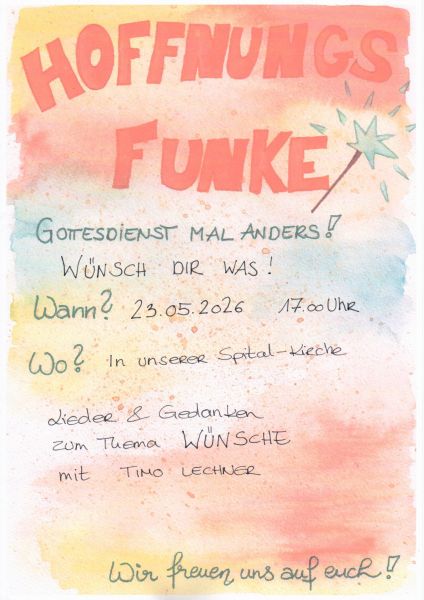 HOFFNUNGS
FUNKE
GOTTESDIENST MAL ANDERS!
WÜNSCH DIR WAS!
Wann? 23.05.2026 17.00 Uhr
Wo? In unserer Spital-Kirche
Lieder & Gedanken
zum Thema WÜNSCHE
mit TIMO LECHNER
Wir freuen uns auf euch!